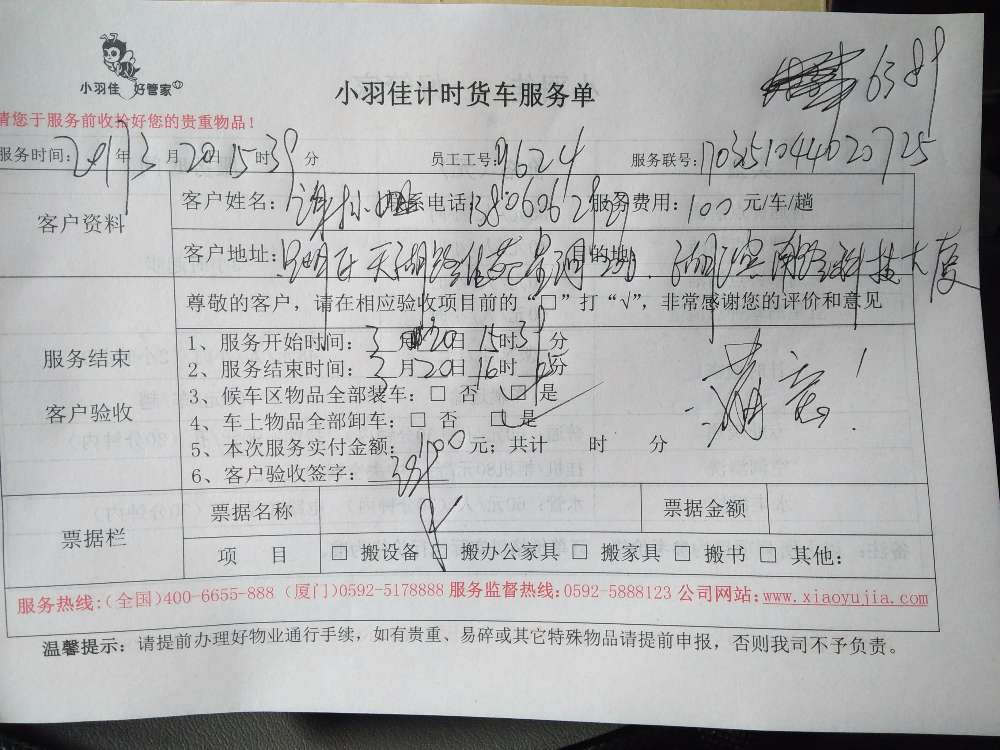 小羽佳 好管家
小羽佳计时货车服务单
6389
请您于服务前收拾好您的贵重物品！
服务时间：2017年3月20日15时39分 员工工号：9624 服务联号：
客户资料
客户姓名： 联系电话： 服务费用：100元/车/趟
客户地址： 目的地： 科技大厦
尊敬的客户，请在相应验收项目前的“□”打“√”，非常感谢您的评价和意见
服务结束
客户验收
1、服务开始时间：3月20日15时39分
2、服务结束时间：3月20日16时 分
3、候车区物品全部装车：□ 否 □ 是
4、车上物品全部卸车：□ 否 □ 是
5、本次服务实付金额：100元；共计 时 分
6、客户验收签字：
满意！
票据栏
票据名称 票据金额
项 目 □ 搬设备 □ 搬办公家具 □ 搬家具 □ 搬书 □ 其他：
服务热线：(全国)400-6655-888 (厦门)0592-5178888 服务监督热线：0592-5888123 公司网站：www.xiaoyujia.com
温馨提示：请提前办理好物业通行手续，如有贵重、易碎或其它特殊物品请提前申报，否则我司不予负责。